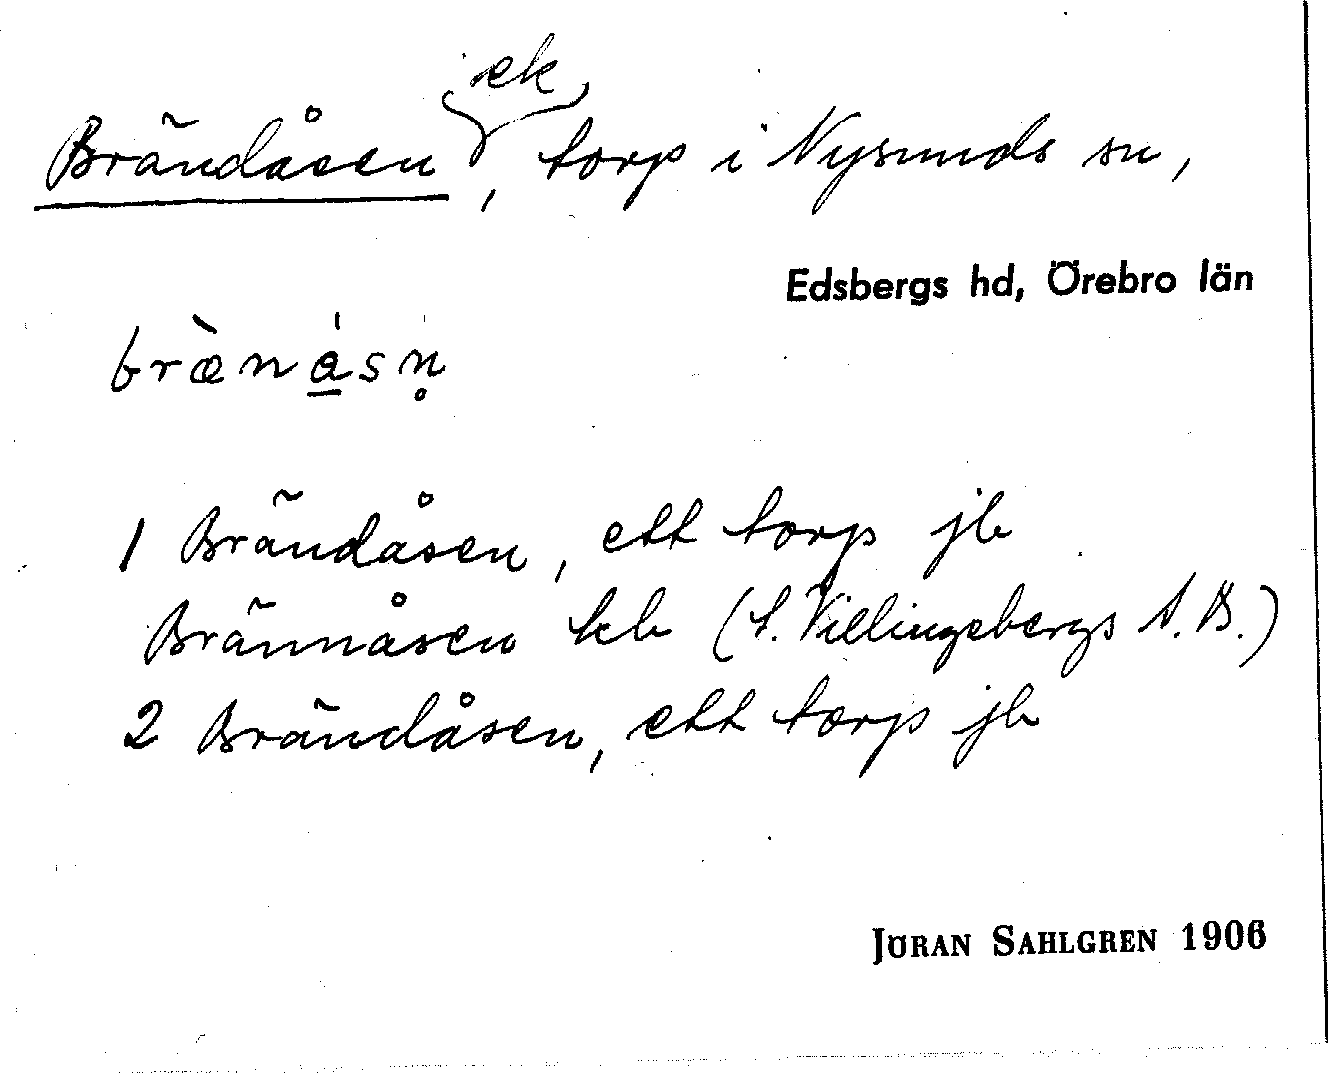 Brändåsen ek, torp i Nysunds sn,
Edsbergs hd, Örebro län
bræ̀násn̥
1 Brändåsen, ett torp jb
Brännåsen kb (t. Villingsbergs A.B.)
2 Brändåsen, ett torp jb
JÖRAN SAHLGREN 1906